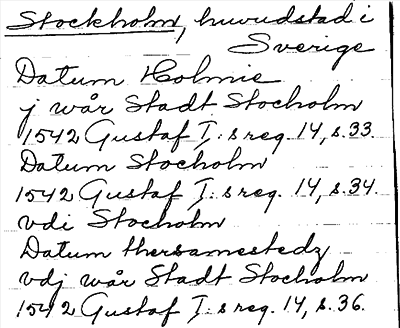 Stockholm, huvudstad i
Sverige
Datum Holmie
j wår Stadt Stocholm
1542 Gustaf I:s reg. 14, s. 33.
Datum Stocholm
1542 Gustaf I:s reg. 14, s. 34.
vdi Stocholm
Datum thersamestedz
vdj wår Stadt Stocholm
1542 Gustaf I:s reg. 14, s. 36.